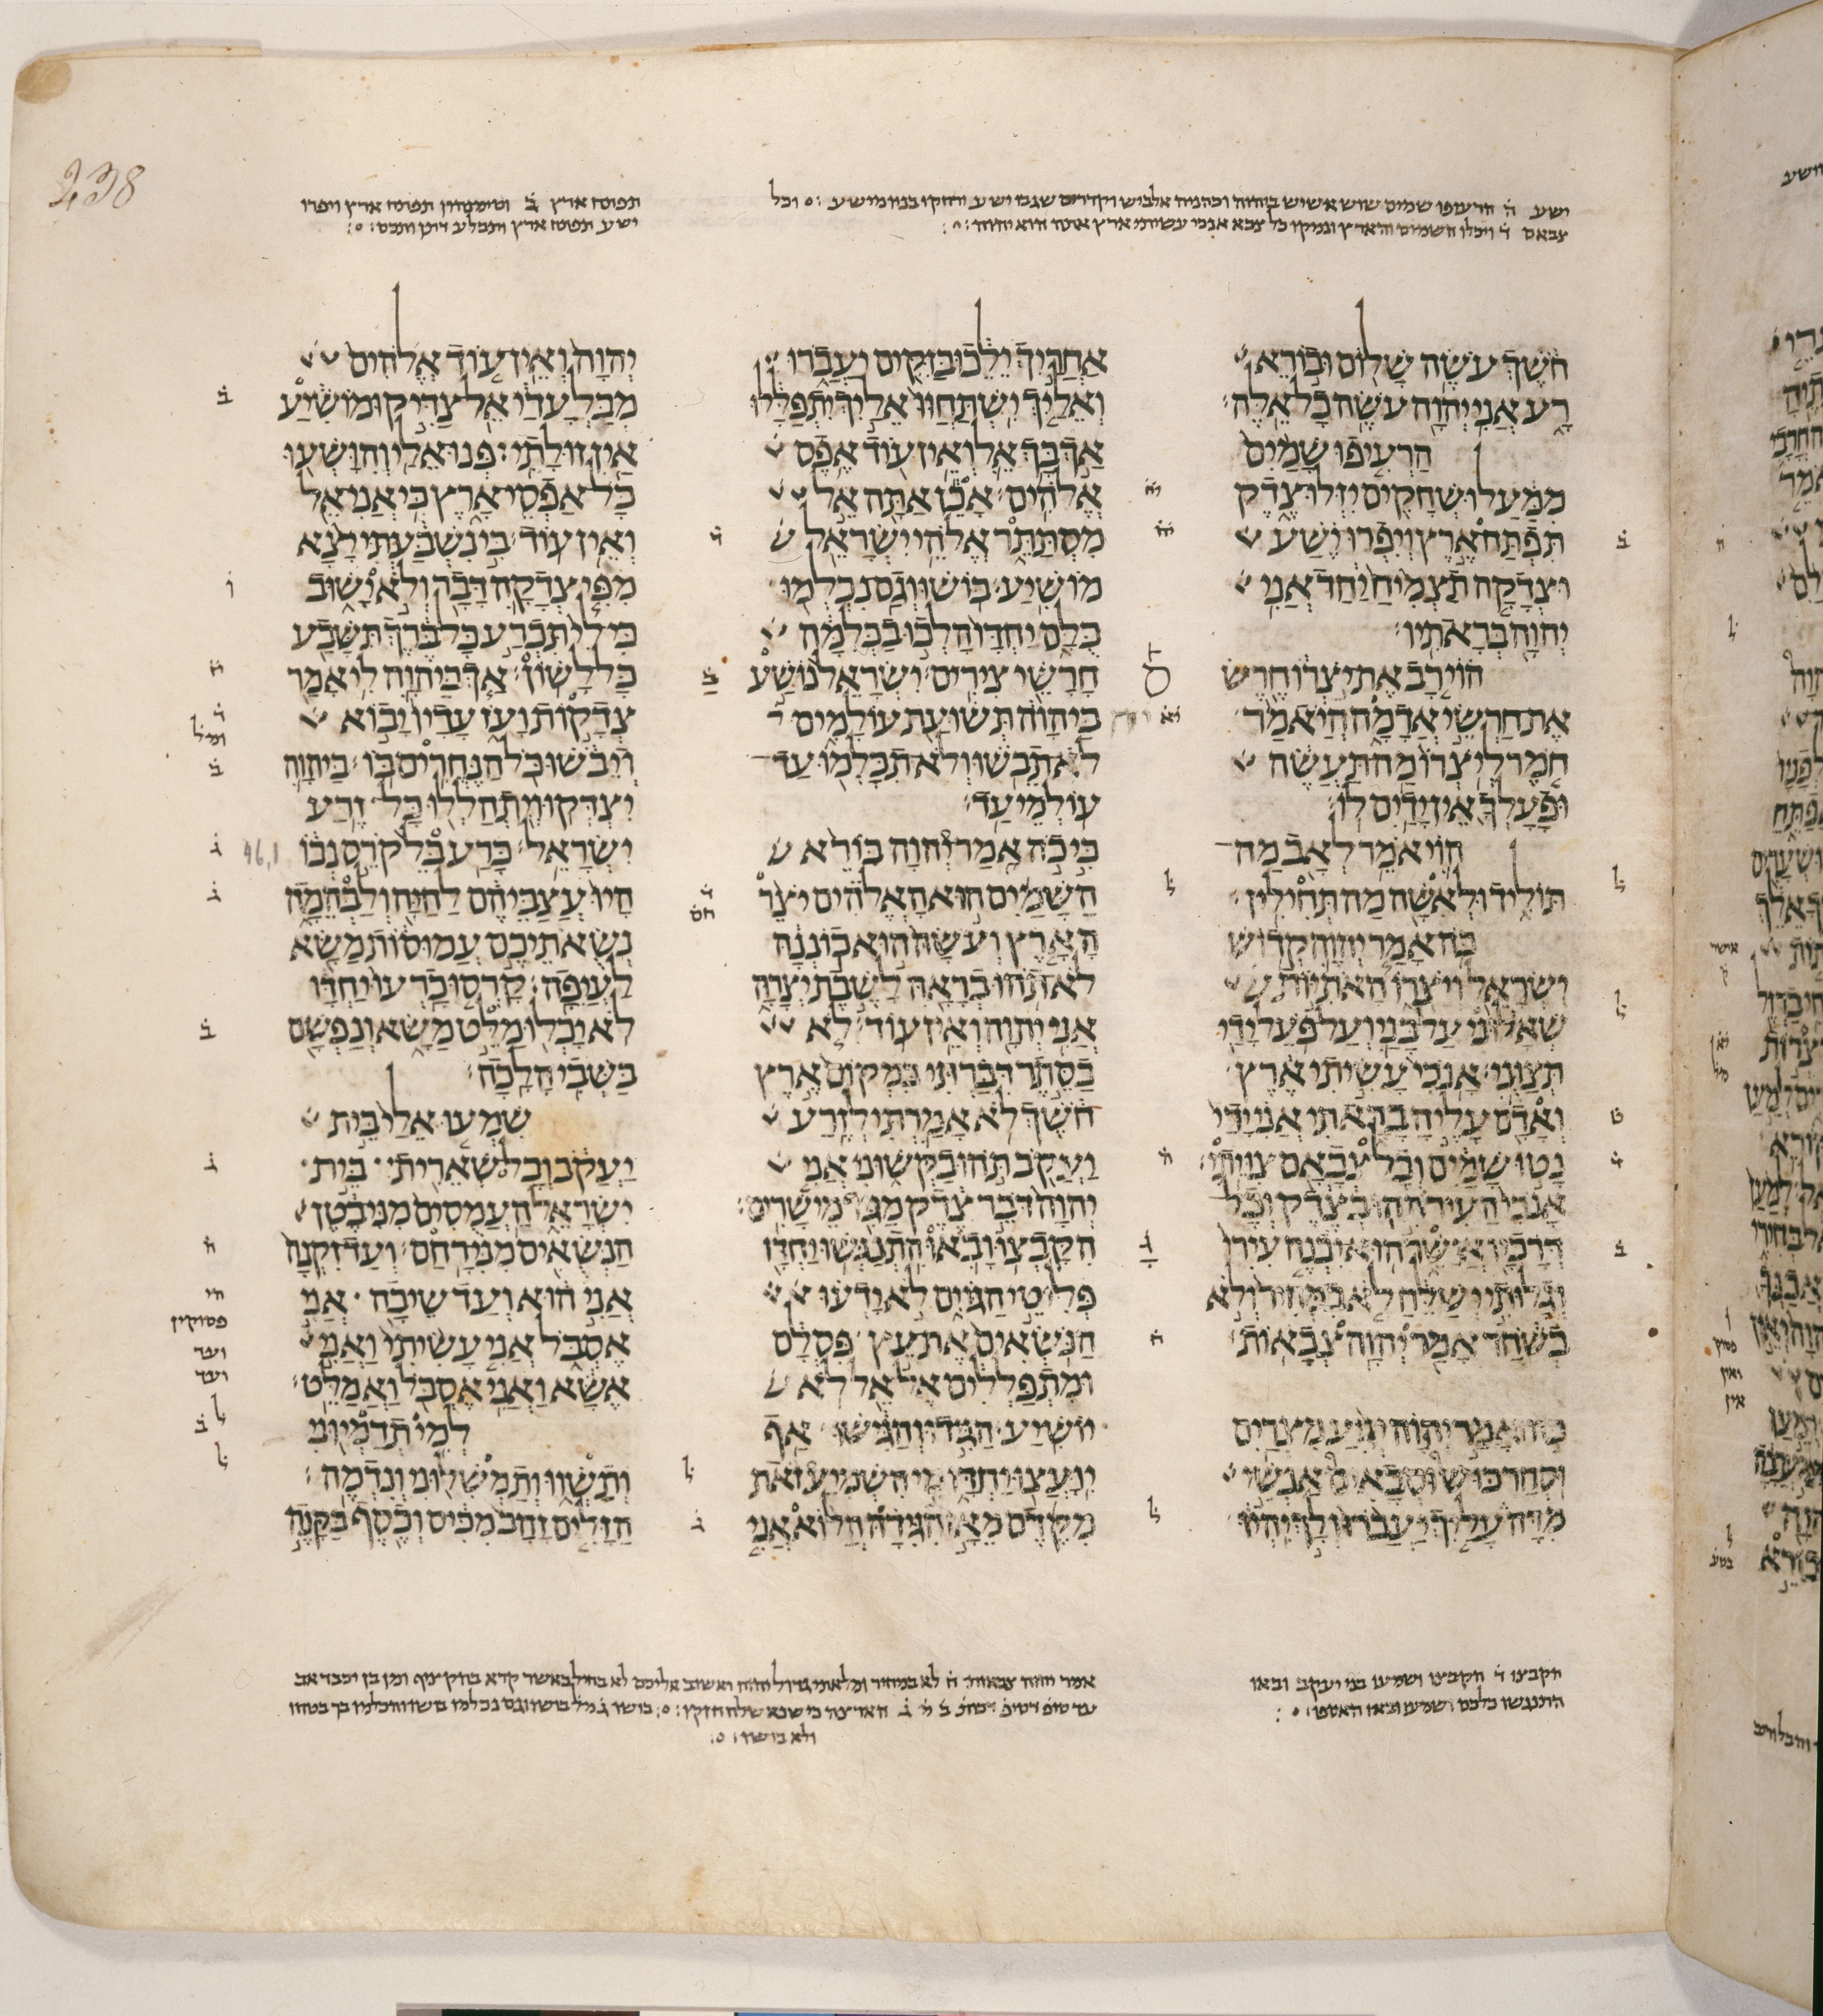 238
ישע ה̇ הרעיפו שמים שוש אשיש ביהוה וכהניה אלביש וקדרים שגבו ישע
צבאם ד̇ ויכלו השמים והארץ ונמקו כל צבא אנכי עשיתי ארץ אתה הוא יהוה
תפתח ארץ ב̇ וסימנהון תפתח ארץ ויפרו
ישע תפתח ארץ ותבלע דתן ותכס
חֹשֶׁךְ עֹשֶׂה שָׁלוֹם וּבוֹרֵא
רָע אֲנִי יְהוָה עֹשֶׂה כָל אֵלֶּה׃
הַרְעִיפוּ שָׁמַיִם
מִמַּעַל וּשְׁחָקִים יִזְּלוּ צֶדֶק
תִּפְתַּח אֶרֶץ וְיִפְרוּ יֶשַׁע
וּצְדָקָה תַצְמִיחַ יַחַד אֲנִי
יְהוָה בְּרָאתִיו׃
הוֹי רָב אֶת יֹצְרוֹ חֶרֶשׂ
אֶת חַרְשֵׂי אֲדָמָה הֲיֹאמַר
חֹמֶר לְיֹצְרוֹ מַה תַּעֲשֶׂה
וּפָעָלְךָ אֵין יָדַיִם לוֹ׃
הוֹי אֹמֵר לְאָב מַה
תּוֹלִיד וּלְאִשָּׁה מַה תְּחִילִין׃
כֹּה אָמַר יְהוָה קְדוֹשׁ
יִשְׂרָאֵל וְיֹצְרוֹ הָאֹתִיּוֹת
שְׁאָלוּנִי עַל בָּנַי וְעַל פֹּעַל יָדַי
תְּצַוֻּנִי׃ אָנֹכִי עָשִׂיתִי אֶרֶץ
וְאָדָם עָלֶיהָ בָרָאתִי אֲנִי יָדַי
נָטוּ שָׁמַיִם וְכָל צְבָאָם צִוֵּיתִי׃
אָנֹכִי הַעִירֹתִהוּ בְצֶדֶק וְכָל
דְּרָכָיו אֲיַשֵּׁר הוּא יִבְנֶה עִירִי
וְגָלוּתִי יְשַׁלֵּחַ לֹא בִמְחִיר וְלֹא
בְשֹׁחַד אָמַר יְהוָה צְבָאוֹת׃
כֹּה אָמַר יְהוָה יְגִיעַ מִצְרַיִם
וּסְחַר כּוּשׁ וּסְבָאִים אַנְשֵׁי
מִדָּה עָלַיִךְ יַעֲבֹרוּ וְלָךְ יִהְיוּ
אַחֲרַיִךְ יֵלֵכוּ בַּזִּקִּים יַעֲבֹרוּ
וְאֵלַיִךְ יִשְׁתַּחֲווּ אֵלַיִךְ יִתְפַּלָּלוּ
אַךְ בָּךְ אֵל וְאֵין עוֹד אֶפֶס
אֱלֹהִים׃ אָכֵן אַתָּה אֵל
מִסְתַּתֵּר אֱלֹהֵי יִשְׂרָאֵל
מוֹשִׁיעַ׃ בּוֹשׁוּ וְגַם נִכְלְמוּ
כֻּלָּם יַחְדָּו הָלְכוּ בַכְּלִמָּה
חָרָשֵׁי צִירִים׃ יִשְׂרָאֵל נוֹשַׁע
בַּיהוָה תְּשׁוּעַת עוֹלָמִים
לֹא תֵבֹשׁוּ וְלֹא תִכָּלְמוּ עַד
עוֹלְמֵי עַד׃
כִּי כֹה אָמַר יְהוָה בּוֹרֵא
הַשָּׁמַיִם הוּא הָאֱלֹהִים יֹצֵר
הָאָרֶץ וְעֹשָׂהּ הוּא כוֹנְנָהּ
לֹא תֹהוּ בְרָאָהּ לָשֶׁבֶת יְצָרָהּ
אֲנִי יְהוָה וְאֵין עוֹד׃ לֹא
בַסֵּתֶר דִּבַּרְתִּי בִּמְקוֹם אֶרֶץ
חֹשֶׁךְ לֹא אָמַרְתִּי לְזֶרַע
יַעֲקֹב תֹּהוּ בַקְּשׁוּנִי אֲנִי
יְהוָה דֹּבֵר צֶדֶק מַגִּיד מֵישָׁרִים׃
הִקָּבְצוּ וָבֹאוּ הִתְנַגְּשׁוּ יַחְדָּו
פְּלִיטֵי הַגּוֹיִם לֹא יָדְעוּ
הַנֹּשְׂאִים אֶת עֵץ פִּסְלָם
וּמִתְפַּלְלִים אֶל אֵל לֹא
יוֹשִׁיעַ׃ הַגִּידוּ וְהַגִּישׁוּ אַף
יִוָּעֲצוּ יַחְדָּו מִי הִשְׁמִיעַ זֹאת
מִקֶּדֶם מֵאָז הִגִּידָהּ הֲלוֹא אֲנִי
יְהוָה וְאֵין עוֹד אֱלֹהִים
מִבַּלְעָדַי אֵל צַדִּיק וּמוֹשִׁיעַ
אַיִן זוּלָתִי׃ פְּנוּ אֵלַי וְהִוָּשְׁעוּ
כָּל אַפְסֵי אָרֶץ כִּי אֲנִי אֵל
וְאֵין עוֹד׃ בִּי נִשְׁבַּעְתִּי יָצָא
מִפִּי צְדָקָה דָּבָר וְלֹא יָשׁוּב
כִּי לִי תִּכְרַע כָּל בֶּרֶךְ תִּשָּׁבַע
כָּל לָשׁוֹן׃ אַךְ בַּיהוָה לִי אָמַר
צְדָקוֹת וָעֹז עָדָיו יָבוֹא
וְיֵבֹשׁוּ כֹּל הַנֶּחֱרִים בּוֹ׃ בַּיהוָה
יִצְדְּקוּ וְיִתְהַלְלוּ כָּל זֶרַע
יִשְׂרָאֵל׃ כָּרַע בֵּל קֹרֵס נְבוֹ
46,1
הָיוּ עֲצַבֵּיהֶם לַחַיָּה וְלַבְּהֵמָה
נְשֻׂאֹתֵיכֶם עֲמוּסוֹת מַשָּׂא
לַעֲיֵפָה׃ קָרְסוּ כָרְעוּ יַחְדָּו
לֹא יָכְלוּ מַלֵּט מַשָּׂא וְנַפְשָׁם
בַּשְּׁבִי הָלָכָה׃
שִׁמְעוּ אֵלַי בֵּית
יַעֲקֹב וְכָל שְׁאֵרִית בֵּית
יִשְׂרָאֵל הַעֲמֻסִים מִנִּי בֶטֶן
הַנְּשֻׂאִים מִנִּי רָחַם׃ וְעַד זִקְנָה
אֲנִי הוּא וְעַד שֵׂיבָה אֲנִי
אֶסְבֹּל אֲנִי עָשִׂיתִי וַאֲנִי
אֶשָּׂא וַאֲנִי אֶסְבֹּל וַאֲמַלֵּט׃
לְמִי תְדַמְיוּנִי
וְתַשְׁווּ וְתַמְשִׁלוּנִי וְנִדְמֶה׃
הַזָּלִים זָהָב מִכִּיס וְכֶסֶף בַּקָּנֶה
הקבצו ד̇ הקבצו ושמעו בני יעקב ובאו
התנגשו כלכם ושמעו ובאו האספו
אמר יהוה צבאות ה̇ לא במחיר ומלאתי גדול יהיה ואשוב אליכם לא בחיל
ולא בושו